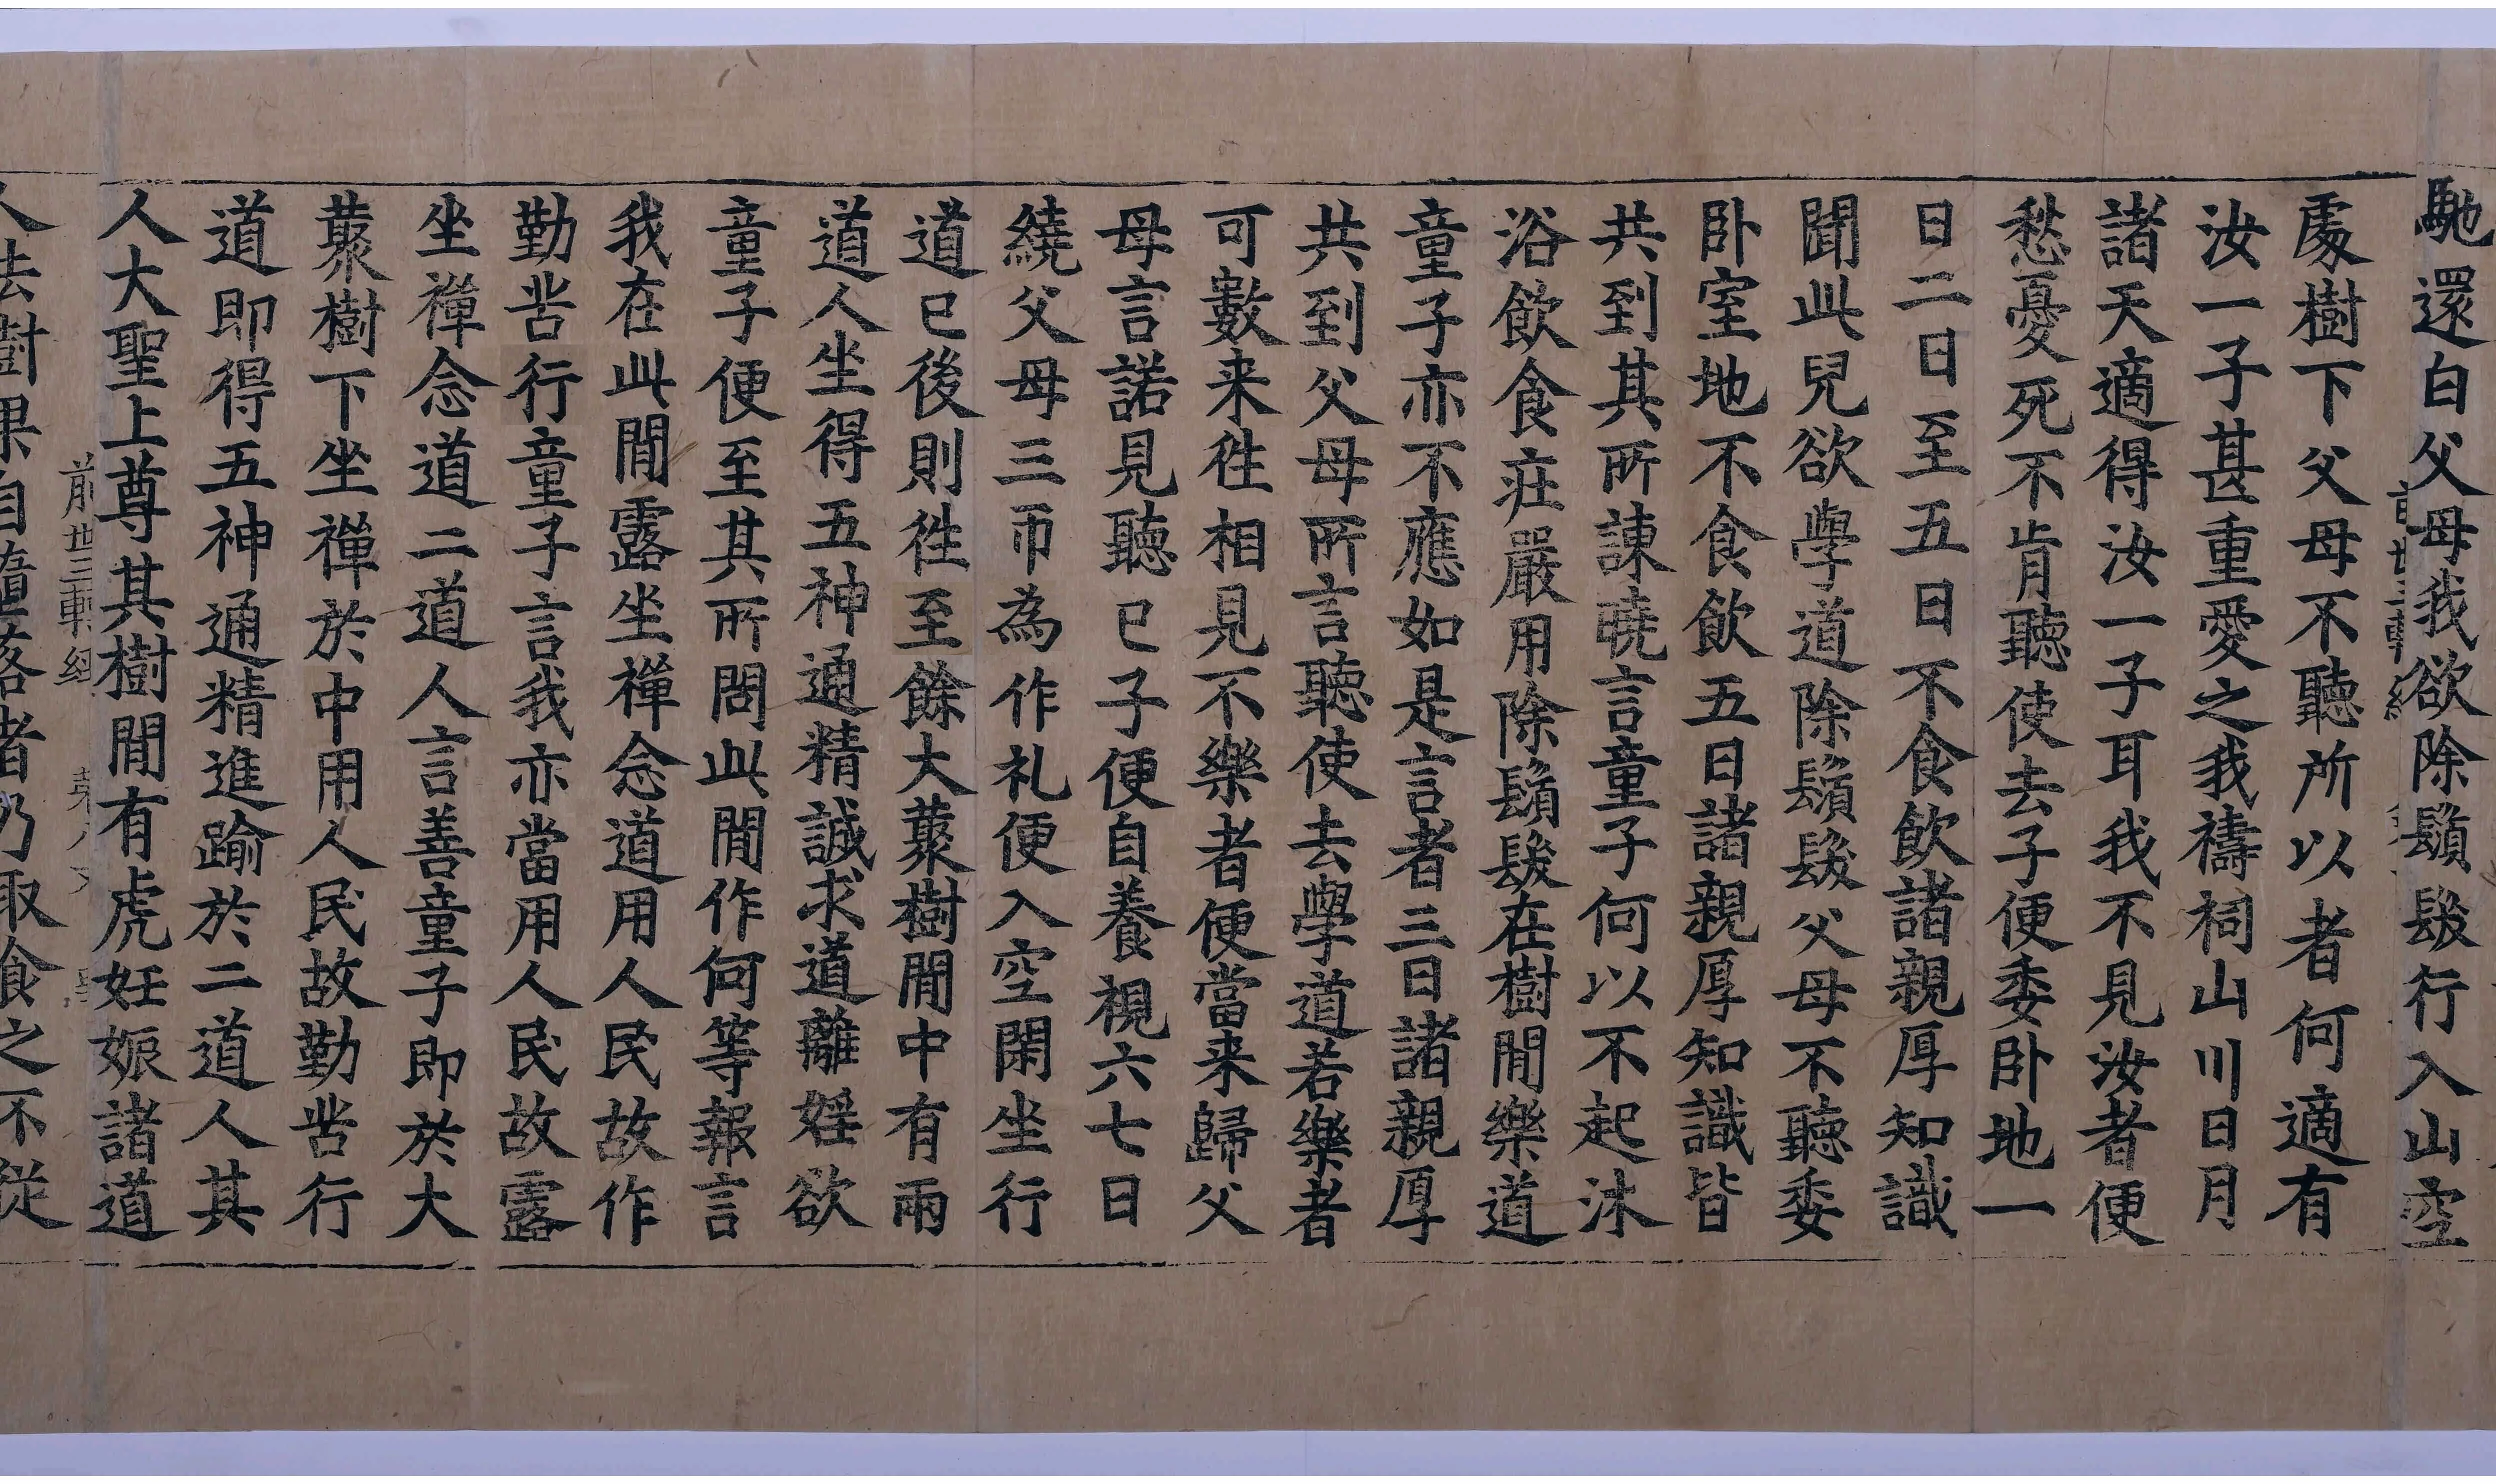 馳還白父母我欲除鬚髮行入山空
處樹下父母不聽所以者何適有
汝一子甚重愛之我禱祠山川日月
諸天適得汝一子耳我不見汝者便
愁憂死不肯聽使去子便委卧地一
日二日至五日不食飲諸親厚知識
聞此兒欲學道除鬚髮父母不聽委
卧室地不食飲五日諸親厚知識皆
共到其所諫曉言童子何以不起沐
浴飲食莊嚴用除鬚髮在樹間樂道
童子亦不應如是言者三日諸親厚
共到父母所言聽使去學道若樂者
可數来徃相見不樂者便當来歸父
母言諾見聽已子便自養視六七日
繞父母三帀為作礼便入空閑坐行
道已後則徃至餘大藂樹間中有兩
道人坐得五神通精誠求道離婬欲
童子便至其所問此間作何等報言
我在此間露坐禪念道用人民故作
勤苦行童子言我亦當用人民故露
坐禪念道二道人言善童子即於大
藂樹下坐禪於中用人民故勤苦行
道即得五神通精進踰於二道人其
人大聖上尊其樹間有虎妊娠諸道
前世三轉經
人去樹果自墮落者乃取食之不從